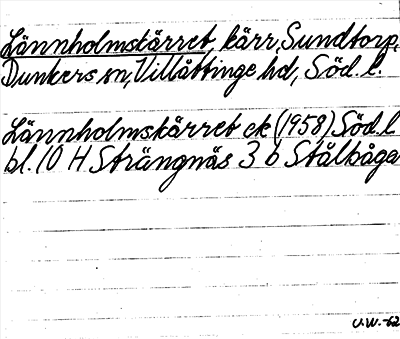 Lännholmskärret, kärr, Sundtorp,
Dunkers sn, Villåttinge hd, Söd. l.
Lännholmskärret ek (1958) Söd. l
bl. 10 H Strängnäs 3 b Stålboga
U.W.-62